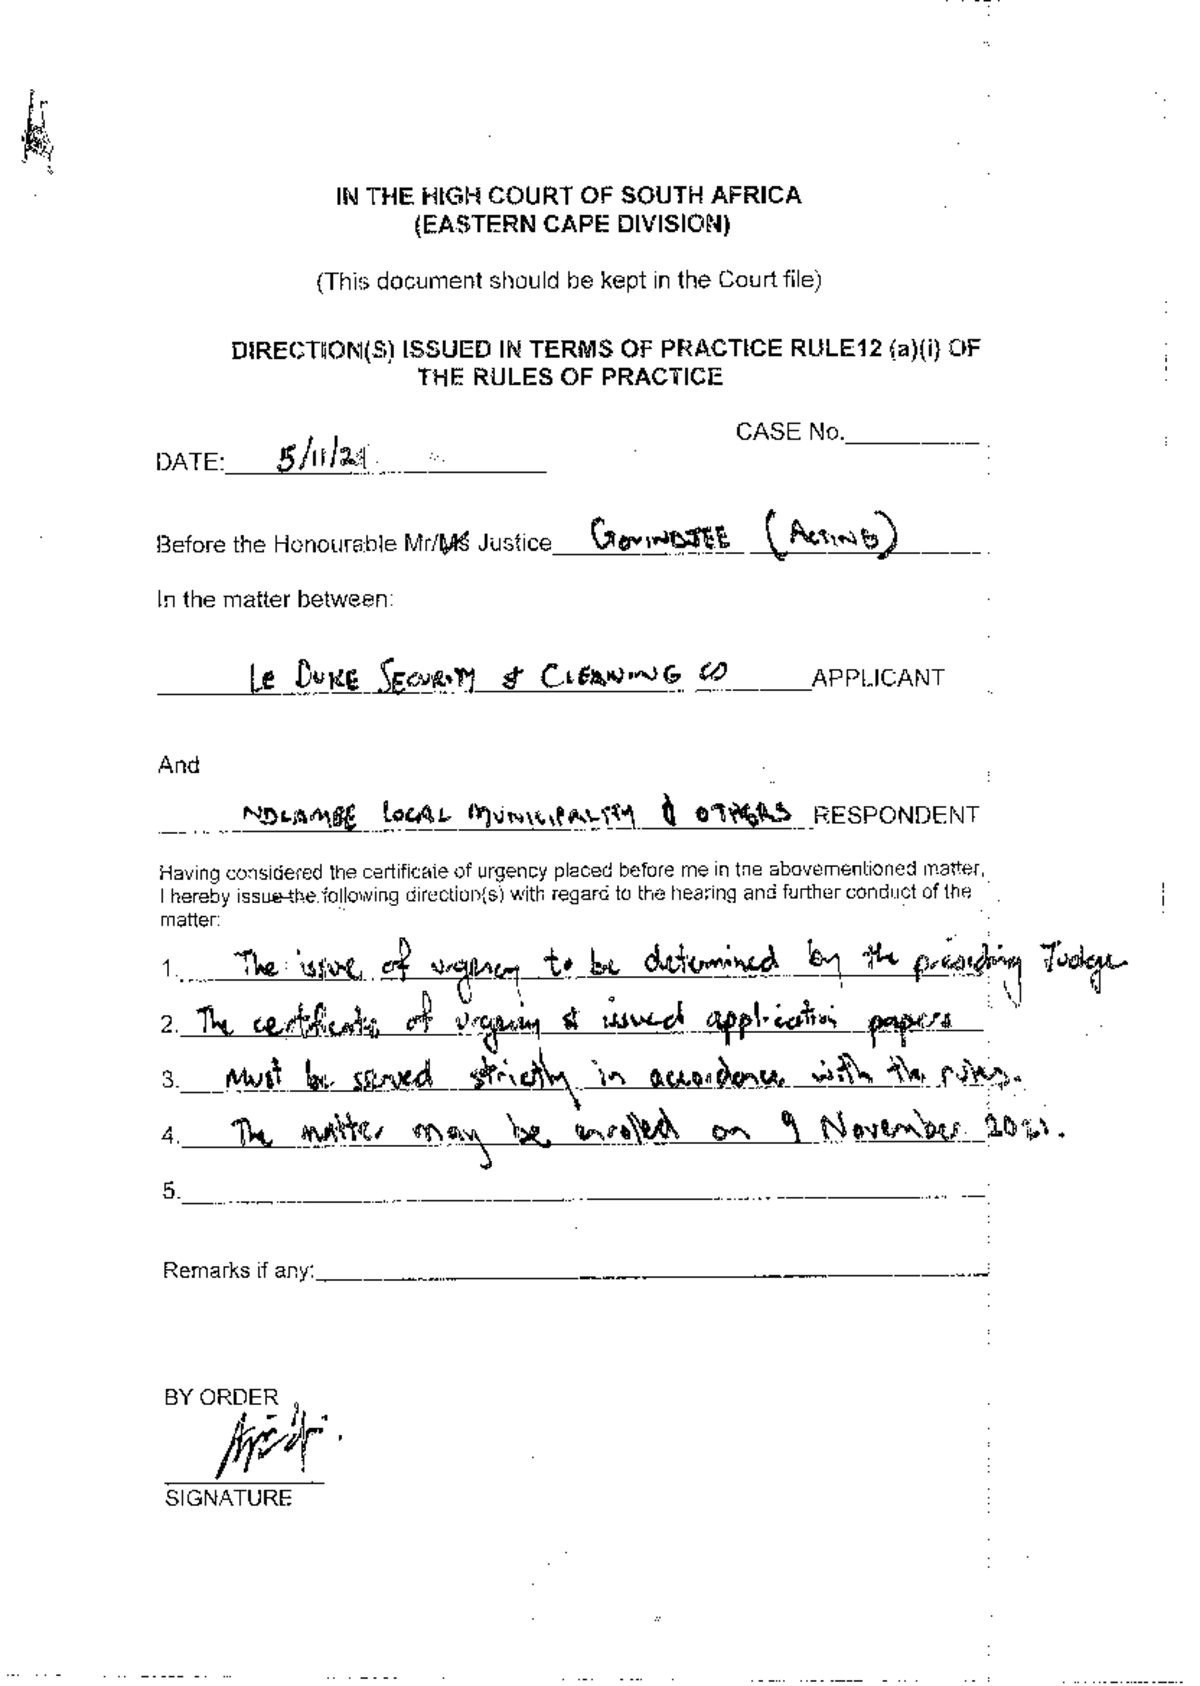 IN THE HIGH COURT OF SOUTH AFRICA
(EASTERN CAPE DIVISION)
(This document should be kept in the Court file)
DIRECTION(S) ISSUED IN TERMS OF PRACTICE RULE12 (a)(i) OF
THE RULES OF PRACTICE
CASE No.
DATE: 5/11/21
Before the Honourable Mr/Ms Justice GOVINDJEE (ACTING)
In the matter between:
LE DUKE SECURITY & CLEANING CO APPLICANT
And
NDLAMBE LOCAL MUNICIPALITY & OTHERS RESPONDENT
Having considered the certificate of urgency placed before me in the abovementioned matter,
I hereby issue the following direction(s) with regard to the hearing and further conduct of the
matter:
1. The issue of urgency to be determined by the presiding Judge
2. The certificate of urgency & issued application papers
3. must be served strictly in accordance with the rules.
4. The matter may be enrolled on 9 November 2021.
5.
Remarks if any:
BY ORDER
SIGNATURE